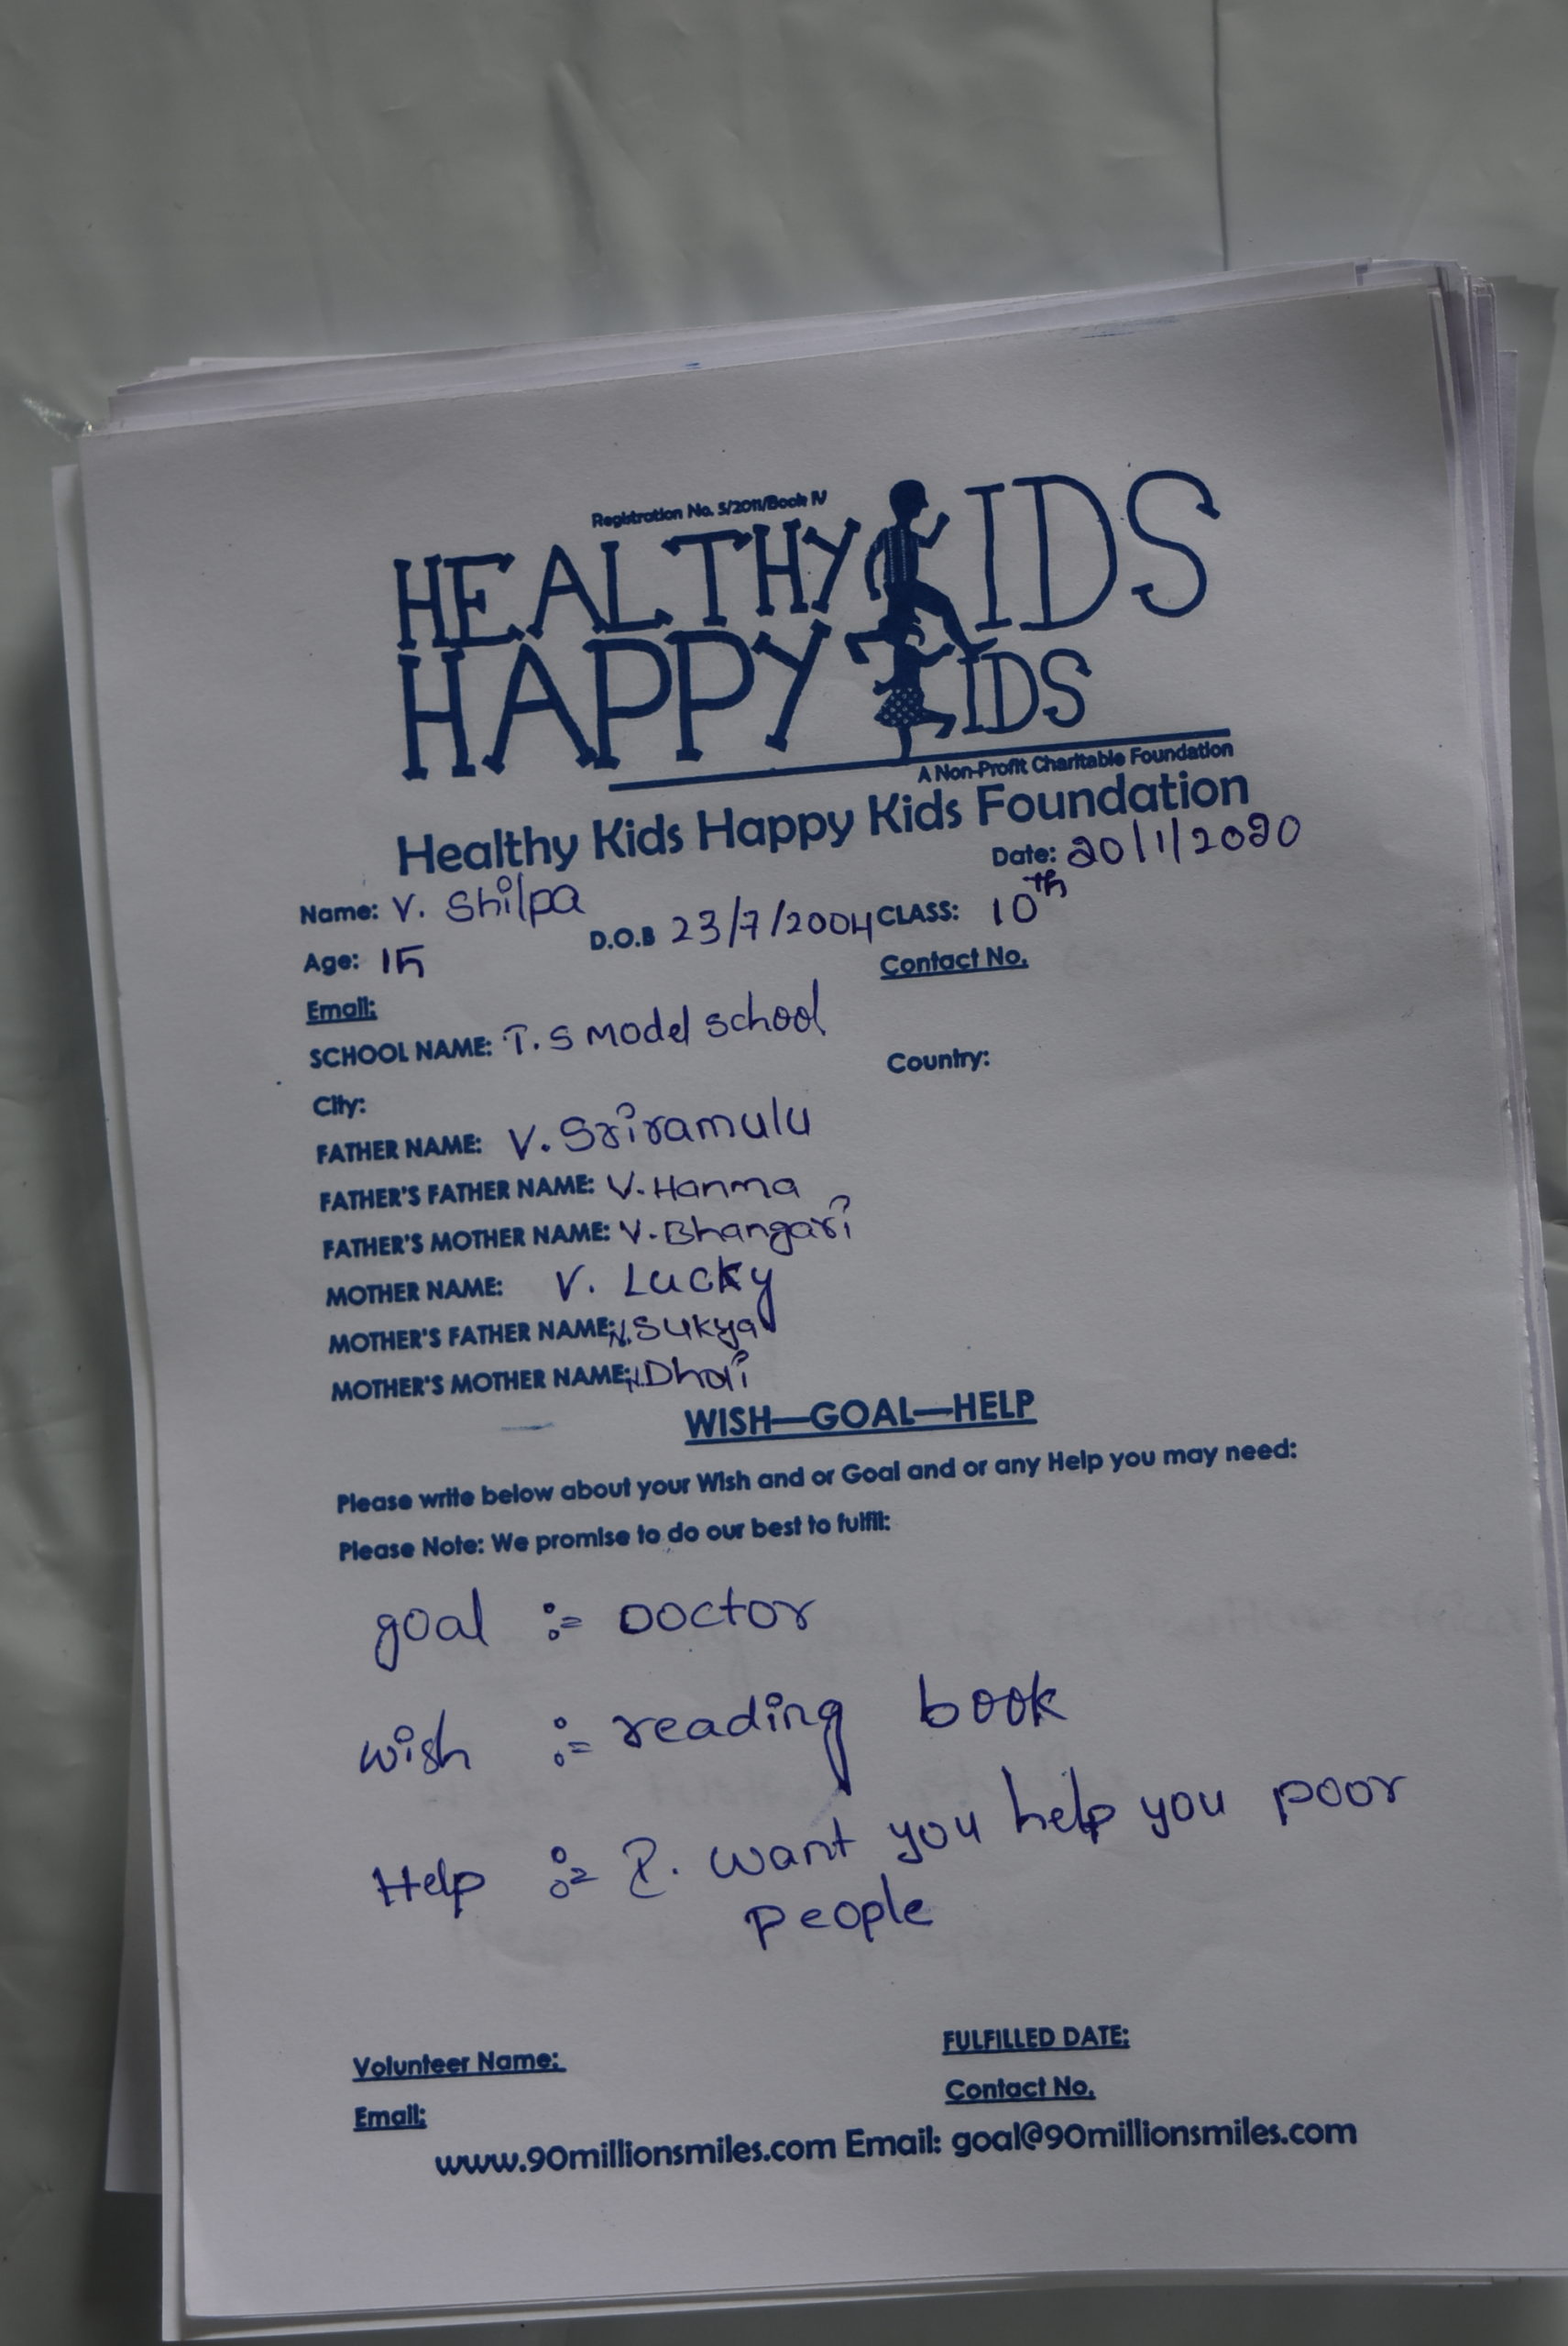 Registration No. 5/2011/Book IV
HEALTHY KIDS
HAPPY KIDS
A Non-Profit Charitable Foundation
Healthy Kids Happy Kids Foundation
Date: 20/1/2020
Name: V. Shilpa
D.O.B 23/7/2004 CLASS: 10th
Age: 15
Contact No.
Email:
SCHOOL NAME: T.S Model School
Country:
City:
FATHER NAME: V. Sriramulu
FATHER'S FATHER NAME: V. Hanma
FATHER'S MOTHER NAME: V. Bhangari
MOTHER NAME: V. Lucky
MOTHER'S FATHER NAME: N. Sukya
MOTHER'S MOTHER NAME: N. Dhali
WISH—GOAL—HELP
Please write below about your Wish and or Goal and or any Help you may need:
Please Note: We promise to do our best to fulfil:
goal :- Doctor
wish :- reading book
Help :- I. want you help you poor
people
Volunteer Name:
FULFILLED DATE:
Email:
Contact No.
www.90millionsmiles.com Email: goal@90millionsmiles.com